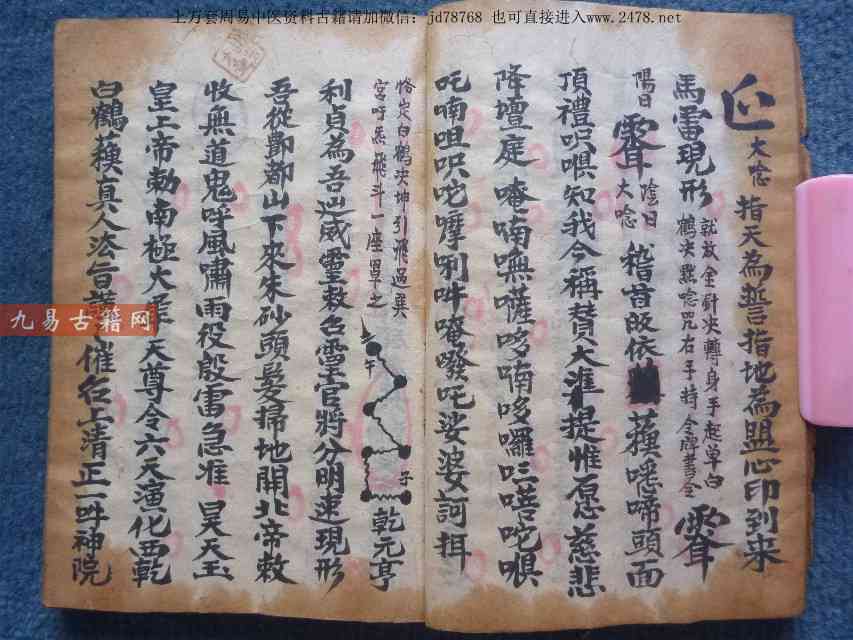 上万套周易中医资料古籍请加微信：jd78768 也可直接进入www.2478.net
大唸 指天為誓指地為盟心印到來
馬雷現形 就放金針决轉身手起单白
鶴决 唸咒右手持令牌書令
陽日 陰日 大唸 稽首皈依 蘓嚥啼頭面
頂禮呮㗢知我今稱賛大準提惟愿慈悲
降壇庭 唵喃嘸薩哆喃哆囉 唕咜㗢
吒喃咀呮咜摩唎吽唵發吒娑婆訶揖
恪定白鶴决坤引飛過巽
宮吁炁飛斗一座 之
午 子 乾元亨
利貞為吾 威靈敕召雷官將分明速現形
吾從酆都山下來朱砂頭髮掃地開北帝敕
收無道鬼呼風嘯雨役殷雷急准 昊天玉
皇上帝勅南極大 天尊令六天演化西乾
白鶴蘓真人法旨 催召上清正一 神院
九易古籍网